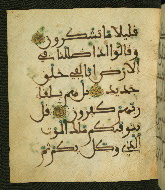 قليلا ما تشكرون
وقالوا أءذا ضللنا في
الأرض أءنا لفي خلق
جديد بل هم بلقاء
ربهم كفرون قل
يتوفيكم ملك الموت
الذي وكل بكم ثم